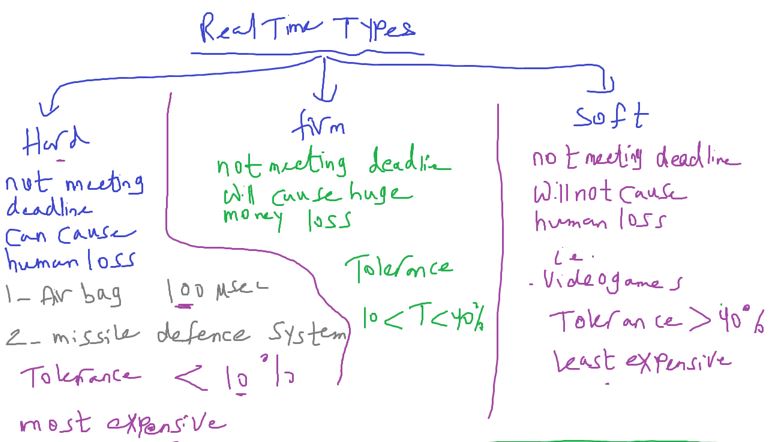 Real Time Types
Hard
not meeting
deadline
can cause
human loss
1- Air bag 100 µsec
2- missile defence system
Tolerance < 10 %
most expensive
firm
not meeting deadline
will cause huge
money loss
Tolerance
10 < T < 40%
Soft
not meeting deadline
will not cause
human loss
i.e.
- Videogames
Tolerance > 40%
least expensive